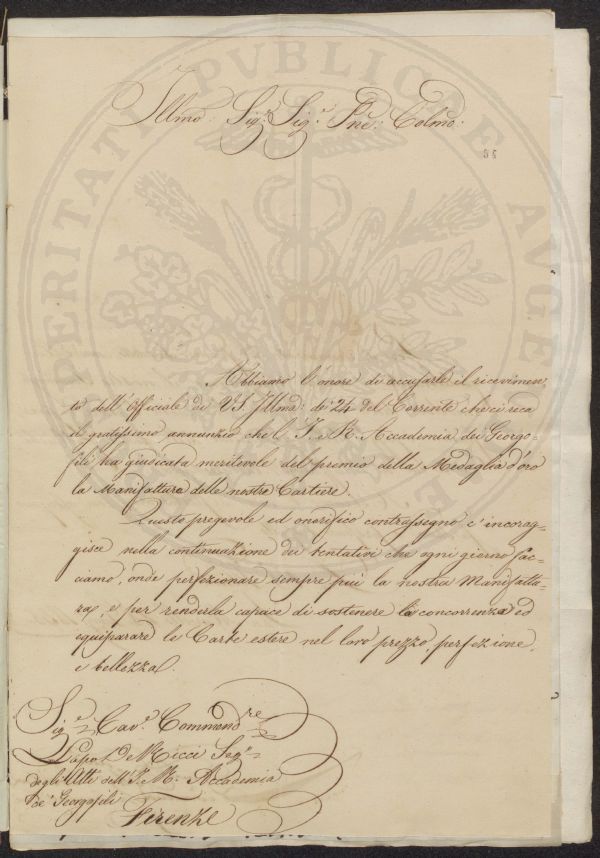 Illmo: Sig.r Sig.r Pne: Colmo:
26
Abbiamo l'onore di accusarle il ricevimen-
to dell'Officiale di V.S. Illma: de' 24 del Corrente che ci reca
il gratissimo annunzio che l'I. e R. Accademia dei Georgo-
fili ha giudicata meritevole del premio della Medaglia d'oro
la Manifattura delle nostre Cartiere.
Questo pregevole ed onorifico contrassegno c'incorag-
gisce nella continuazione dei tentativi che ogni giorno fac-
ciamo, onde perfezionare sempre più la nostra Manifattu-
ra, e per renderla capace di sostenere la concorrenza ed
equiparare le Carte estere nel loro prezzo, perfezione,
e bellezza.
Sig.r Cav.r Command.re
Lapo de Ricci Seg.
degli Atti dell'I. R. Accademia
de' Georgofili
Firenze
PVBLICAE